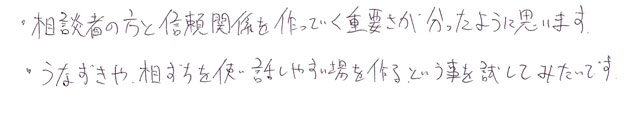 ・相談者の方と信頼関係を作っていく重要さが分ったように思います.
・うなずきや、相ずちを使い話しやすい場を作るという事を試してみたいです.